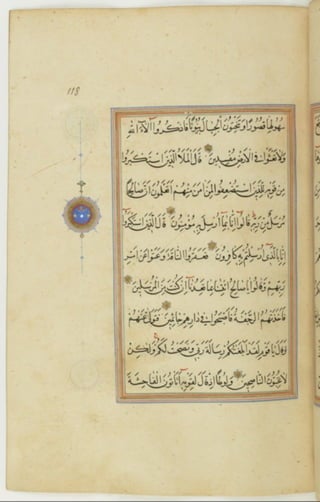 118
سهولها قصورا وتنحتون الجبال بيوتا فاذكروا آلاء الله
ولا تعثوا في الارض مفسدين قال الملأ الذين استكبروا
من قومه للذين استضعفوا لمن آمن منهم اتعلمون ان صالحا
مرسل من ربه قالوا انا بما ارسل به مؤمنون قال الذين استكبروا
انا بالذي آمنتم به كافرون فعقروا الناقة وعتوا عن امر
ربهم وقالوا يا صالح ائتنا بما تعدنا ان كنت من المرسلين
فاخذتهم الرجفة فاصبحوا في دارهم جاثمين فتولى عنهم
وقال يا قوم لقد ابلغتكم رسالة ربي ونصحت لكم ولكن
لا تحبون الناصحين ولوطا اذ قال لقومه أتأتون الفاحشة